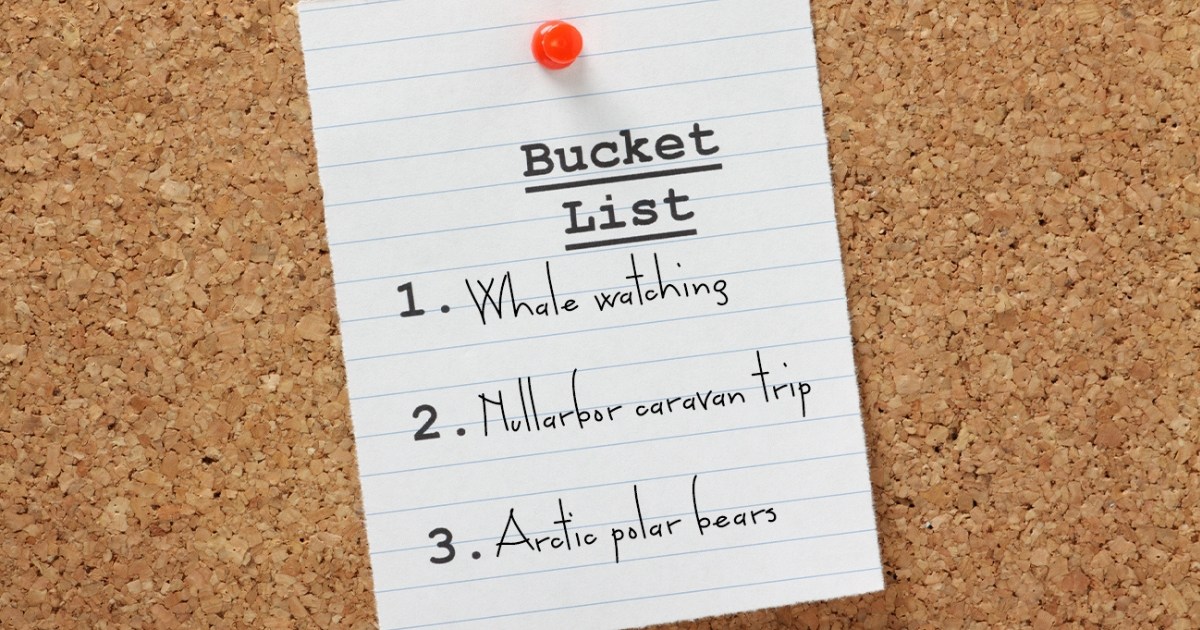 Bucket
List
1. Whale watching
2. Nullarbor caravan trip
3. Arctic polar bears